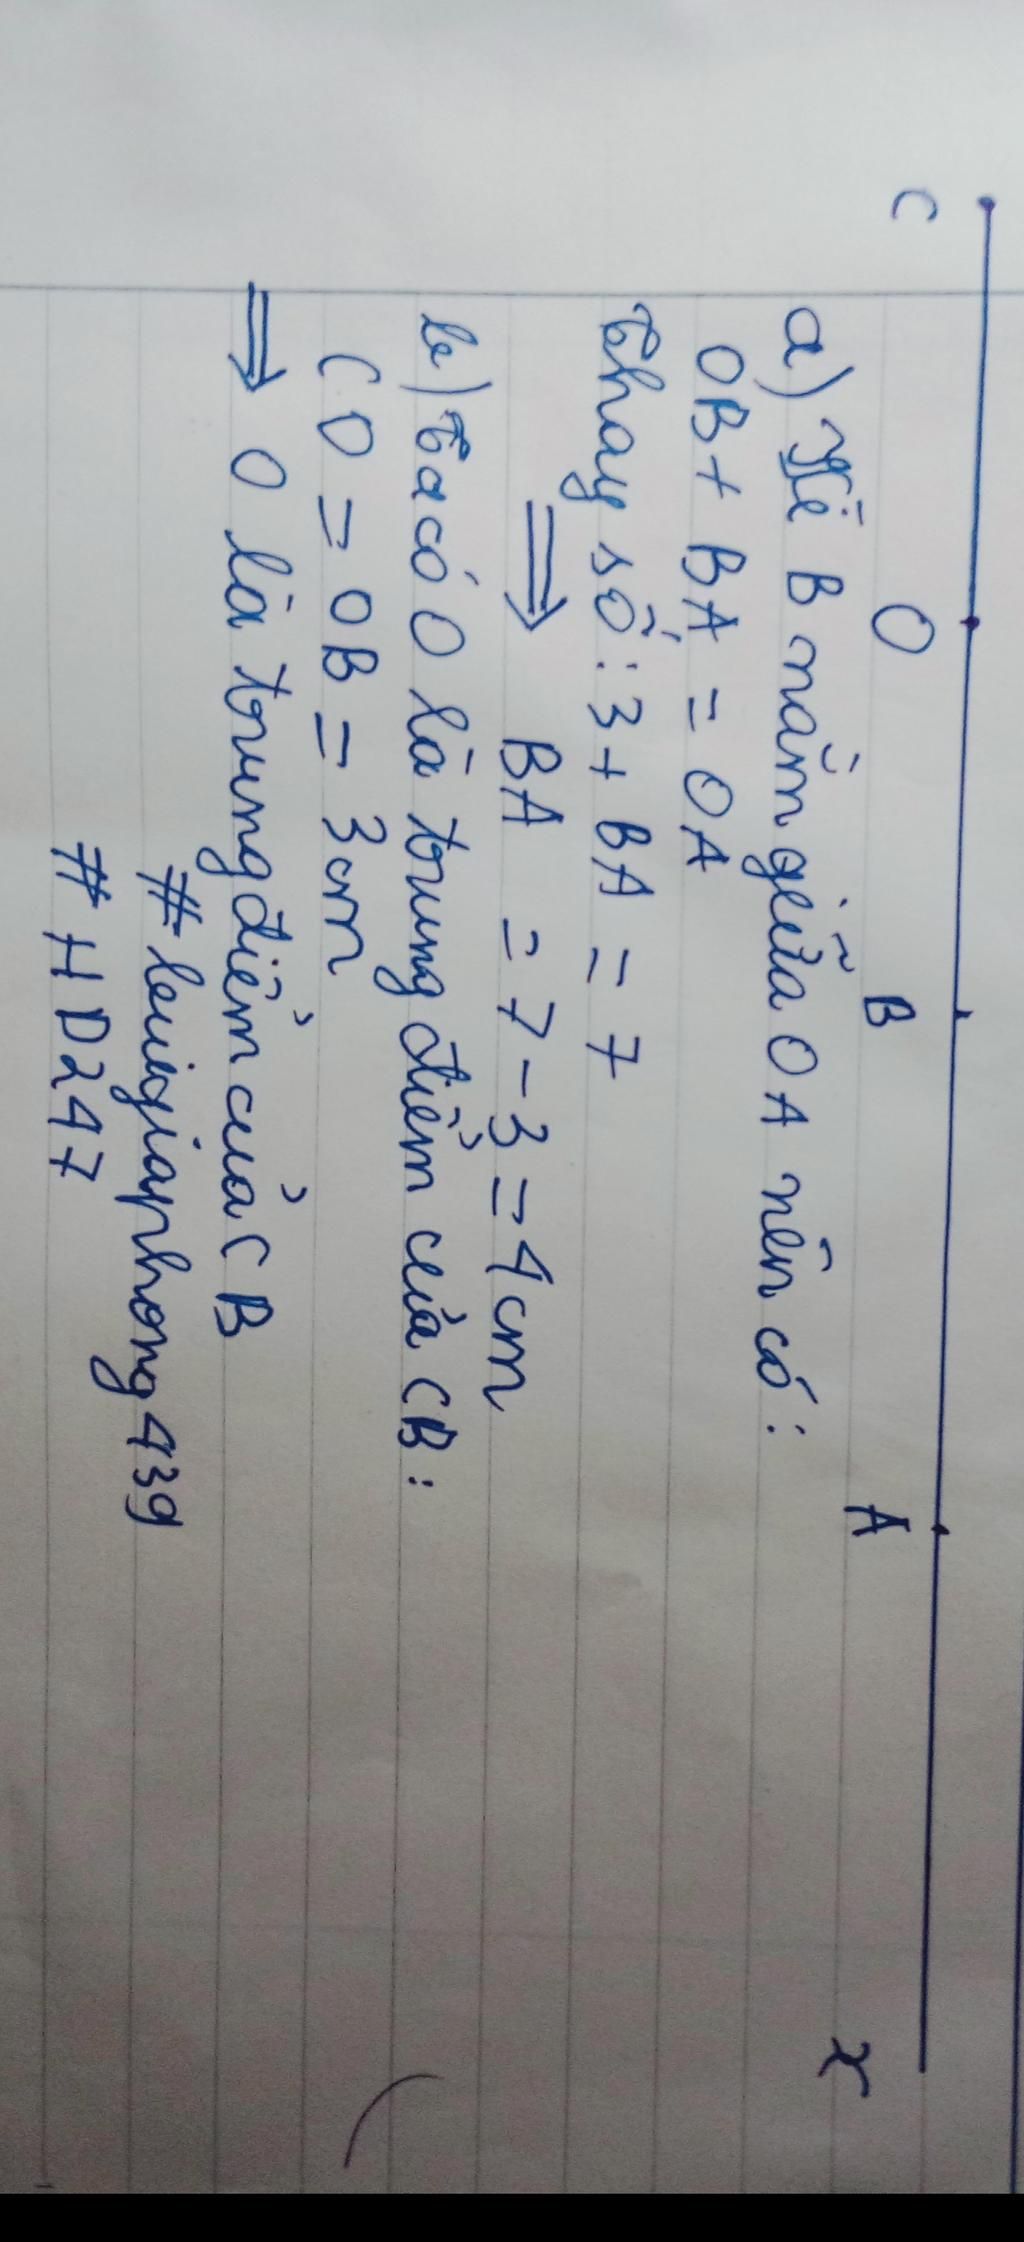 C O B A x
a) Vì B nằm giữa OA nên có:
OB + BA = OA
Thay số: 3 + BA = 7
⇒ BA = 7 - 3 = 4cm
b) Ta có O là trung điểm của CB:
CO = OB = 3cm
⇒ O là trung điểm của CB
#leugiaphong439
#HD247